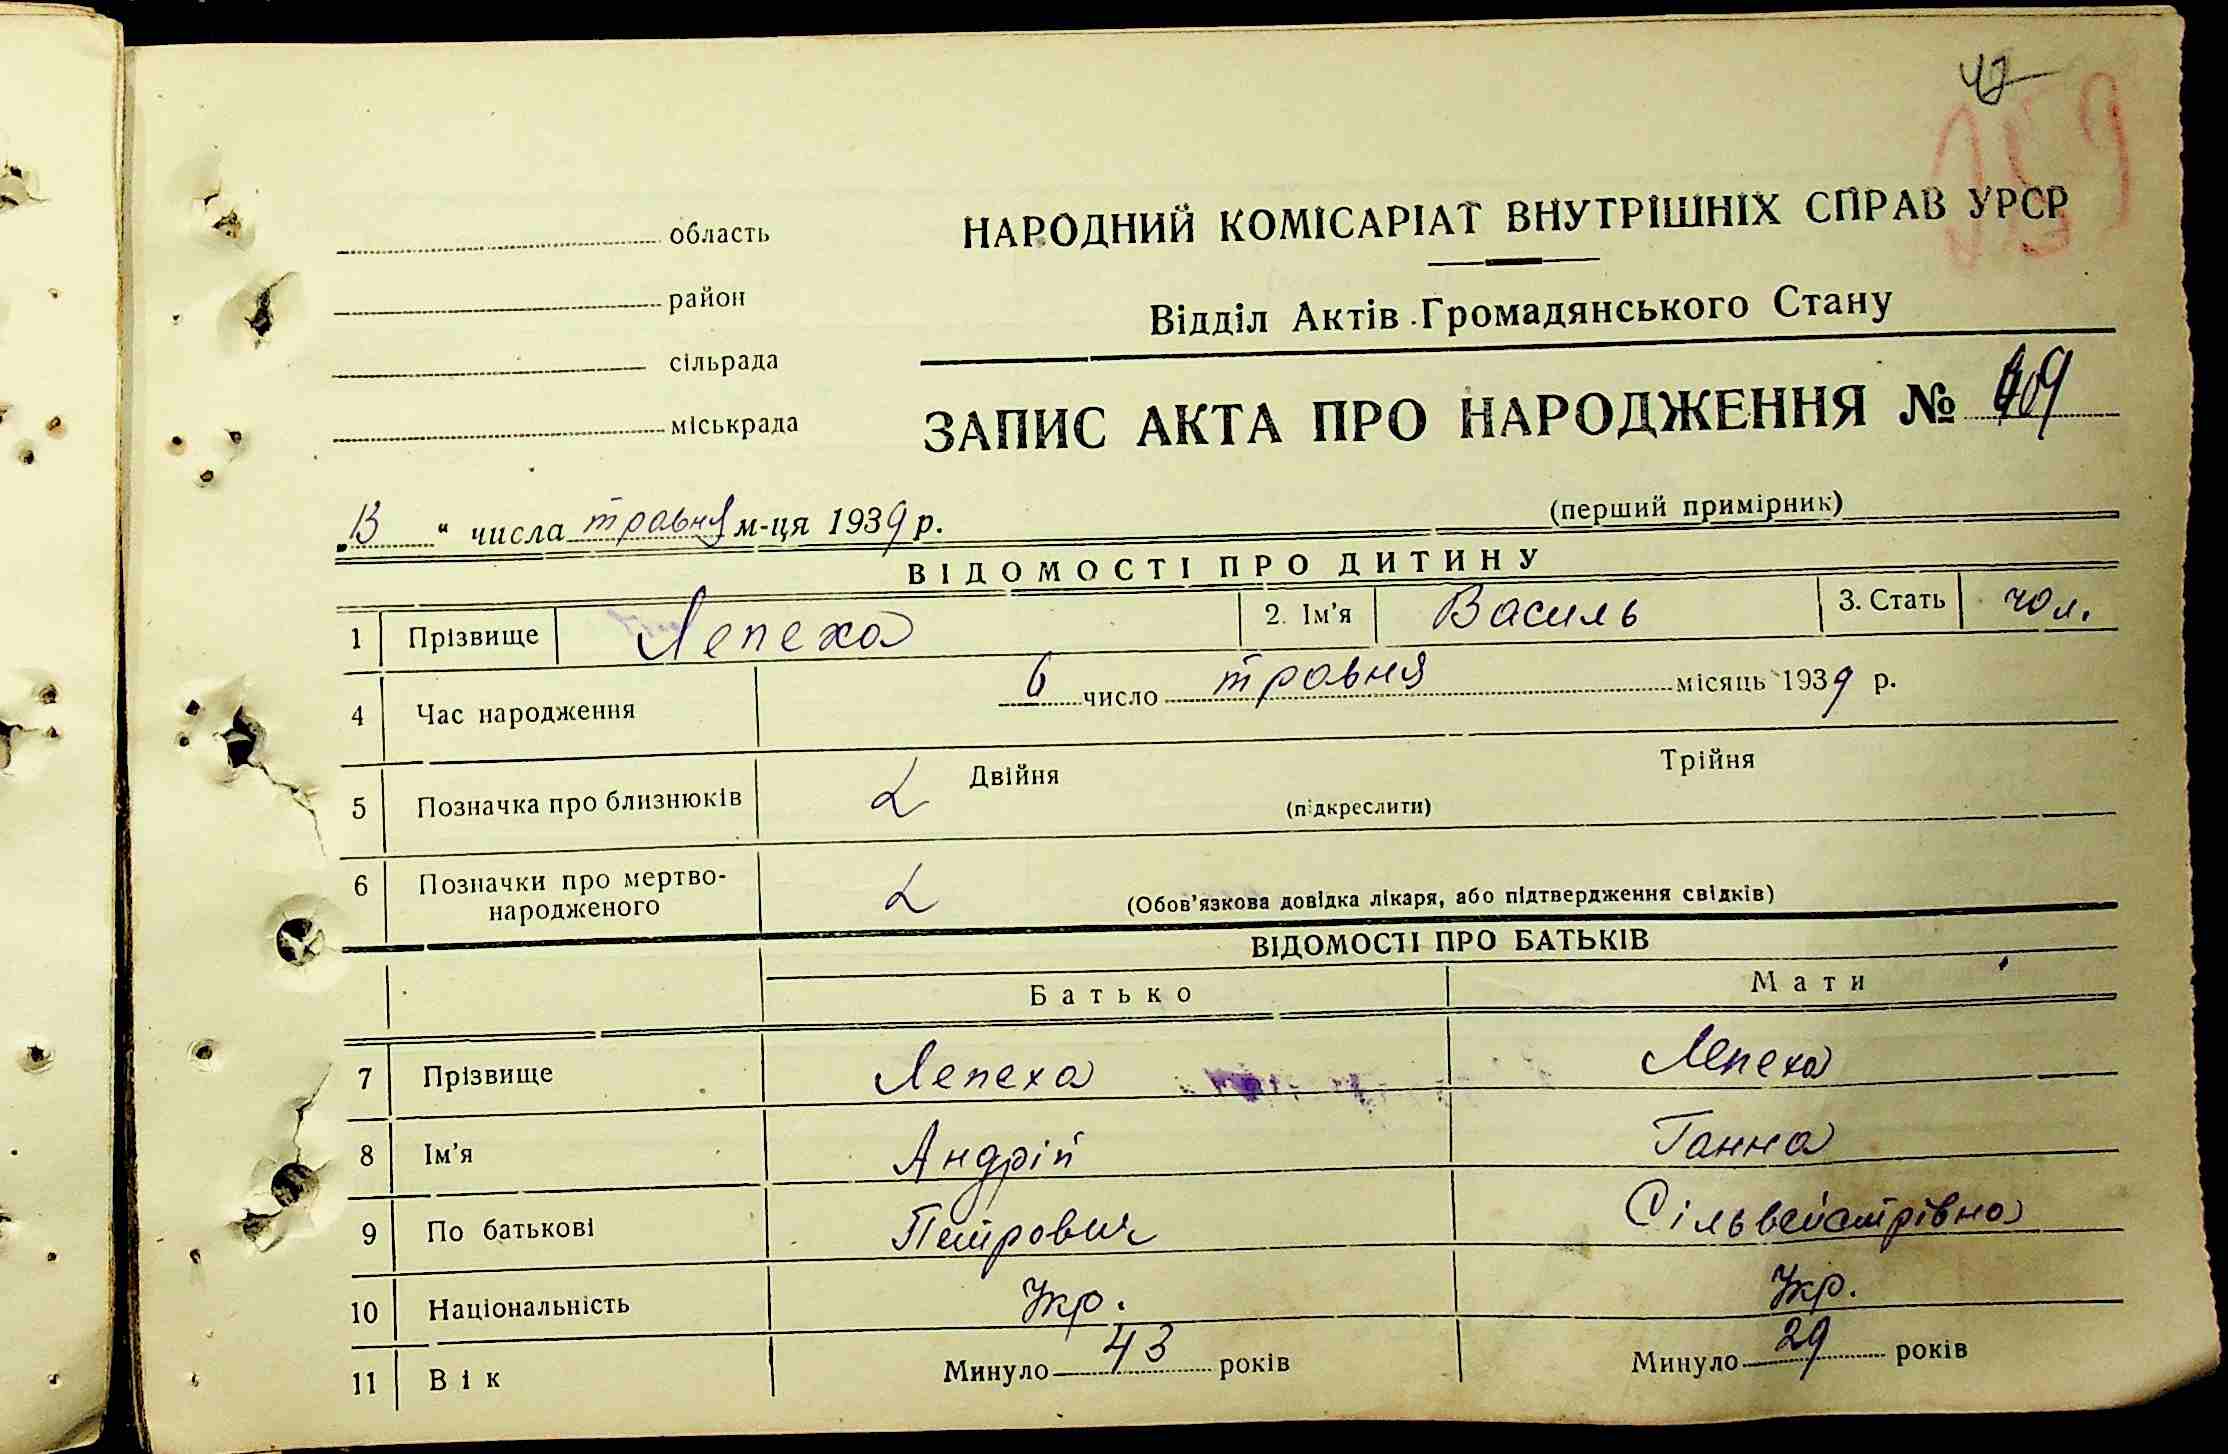 42
НАРОДНИЙ КОМІСАРІАТ ВНУТРІШНІХ СПРАВ УРСР
область
район
Відділ Актів Громадянського Стану
сільрада
міськрада
ЗАПИС АКТА ПРО НАРОДЖЕННЯ №
(перший примірник)
„13“ числа травня м-ця 1939 р.
ВІДОМОСТІ ПРО ДИТИНУ
1 Прізвище Лепеха 2. Ім'я Василь 3. Стать чол.
4 Час народження 6 число травня місяць 1939 р.
5 Позначка про близнюків Двійня Трійня
(підкреслити)
6 Позначки про мертво-
народженого (Обов'язкова довідка лікаря, або підтвердження свідків)
ВІДОМОСТІ ПРО БАТЬКІВ
Батько Мати
7 Прізвище Лепеха Лепеха
8 Ім'я Андрій Ганна
9 По батькові Петрович Сільвестрівна
10 Національність Укр. Укр.
11 Вік Минуло 43 років Минуло 29 років